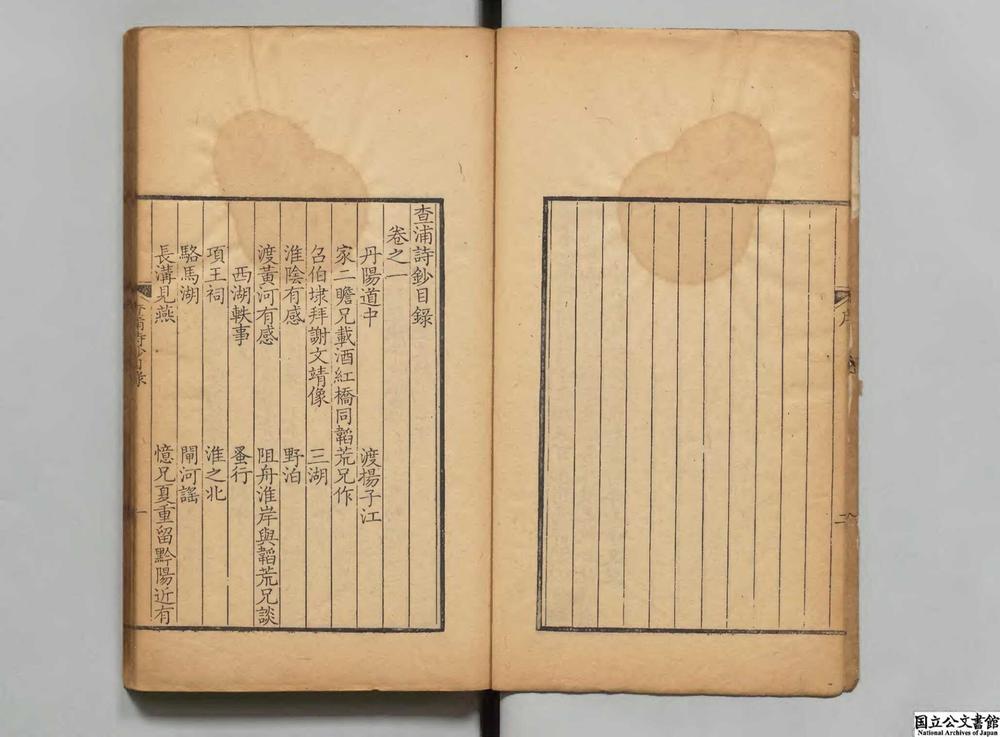 序
二
查浦詩鈔目録
卷之一
丹陽道中 渡揚子江
家二瞻兄載酒紅橋同韜荒兄作
召伯埭拜謝文靖像 三湖
淮陰有感 野泊
渡黃河有感 阻舟淮岸與韜荒兄談
西湖軼事 蚤行
項王祠 淮之北
駱馬湖 閘河謠
長溝見燕 憶兄夏重留黔陽近有
查浦詩鈔目録
一
国立公文書館
National Archives of Japan